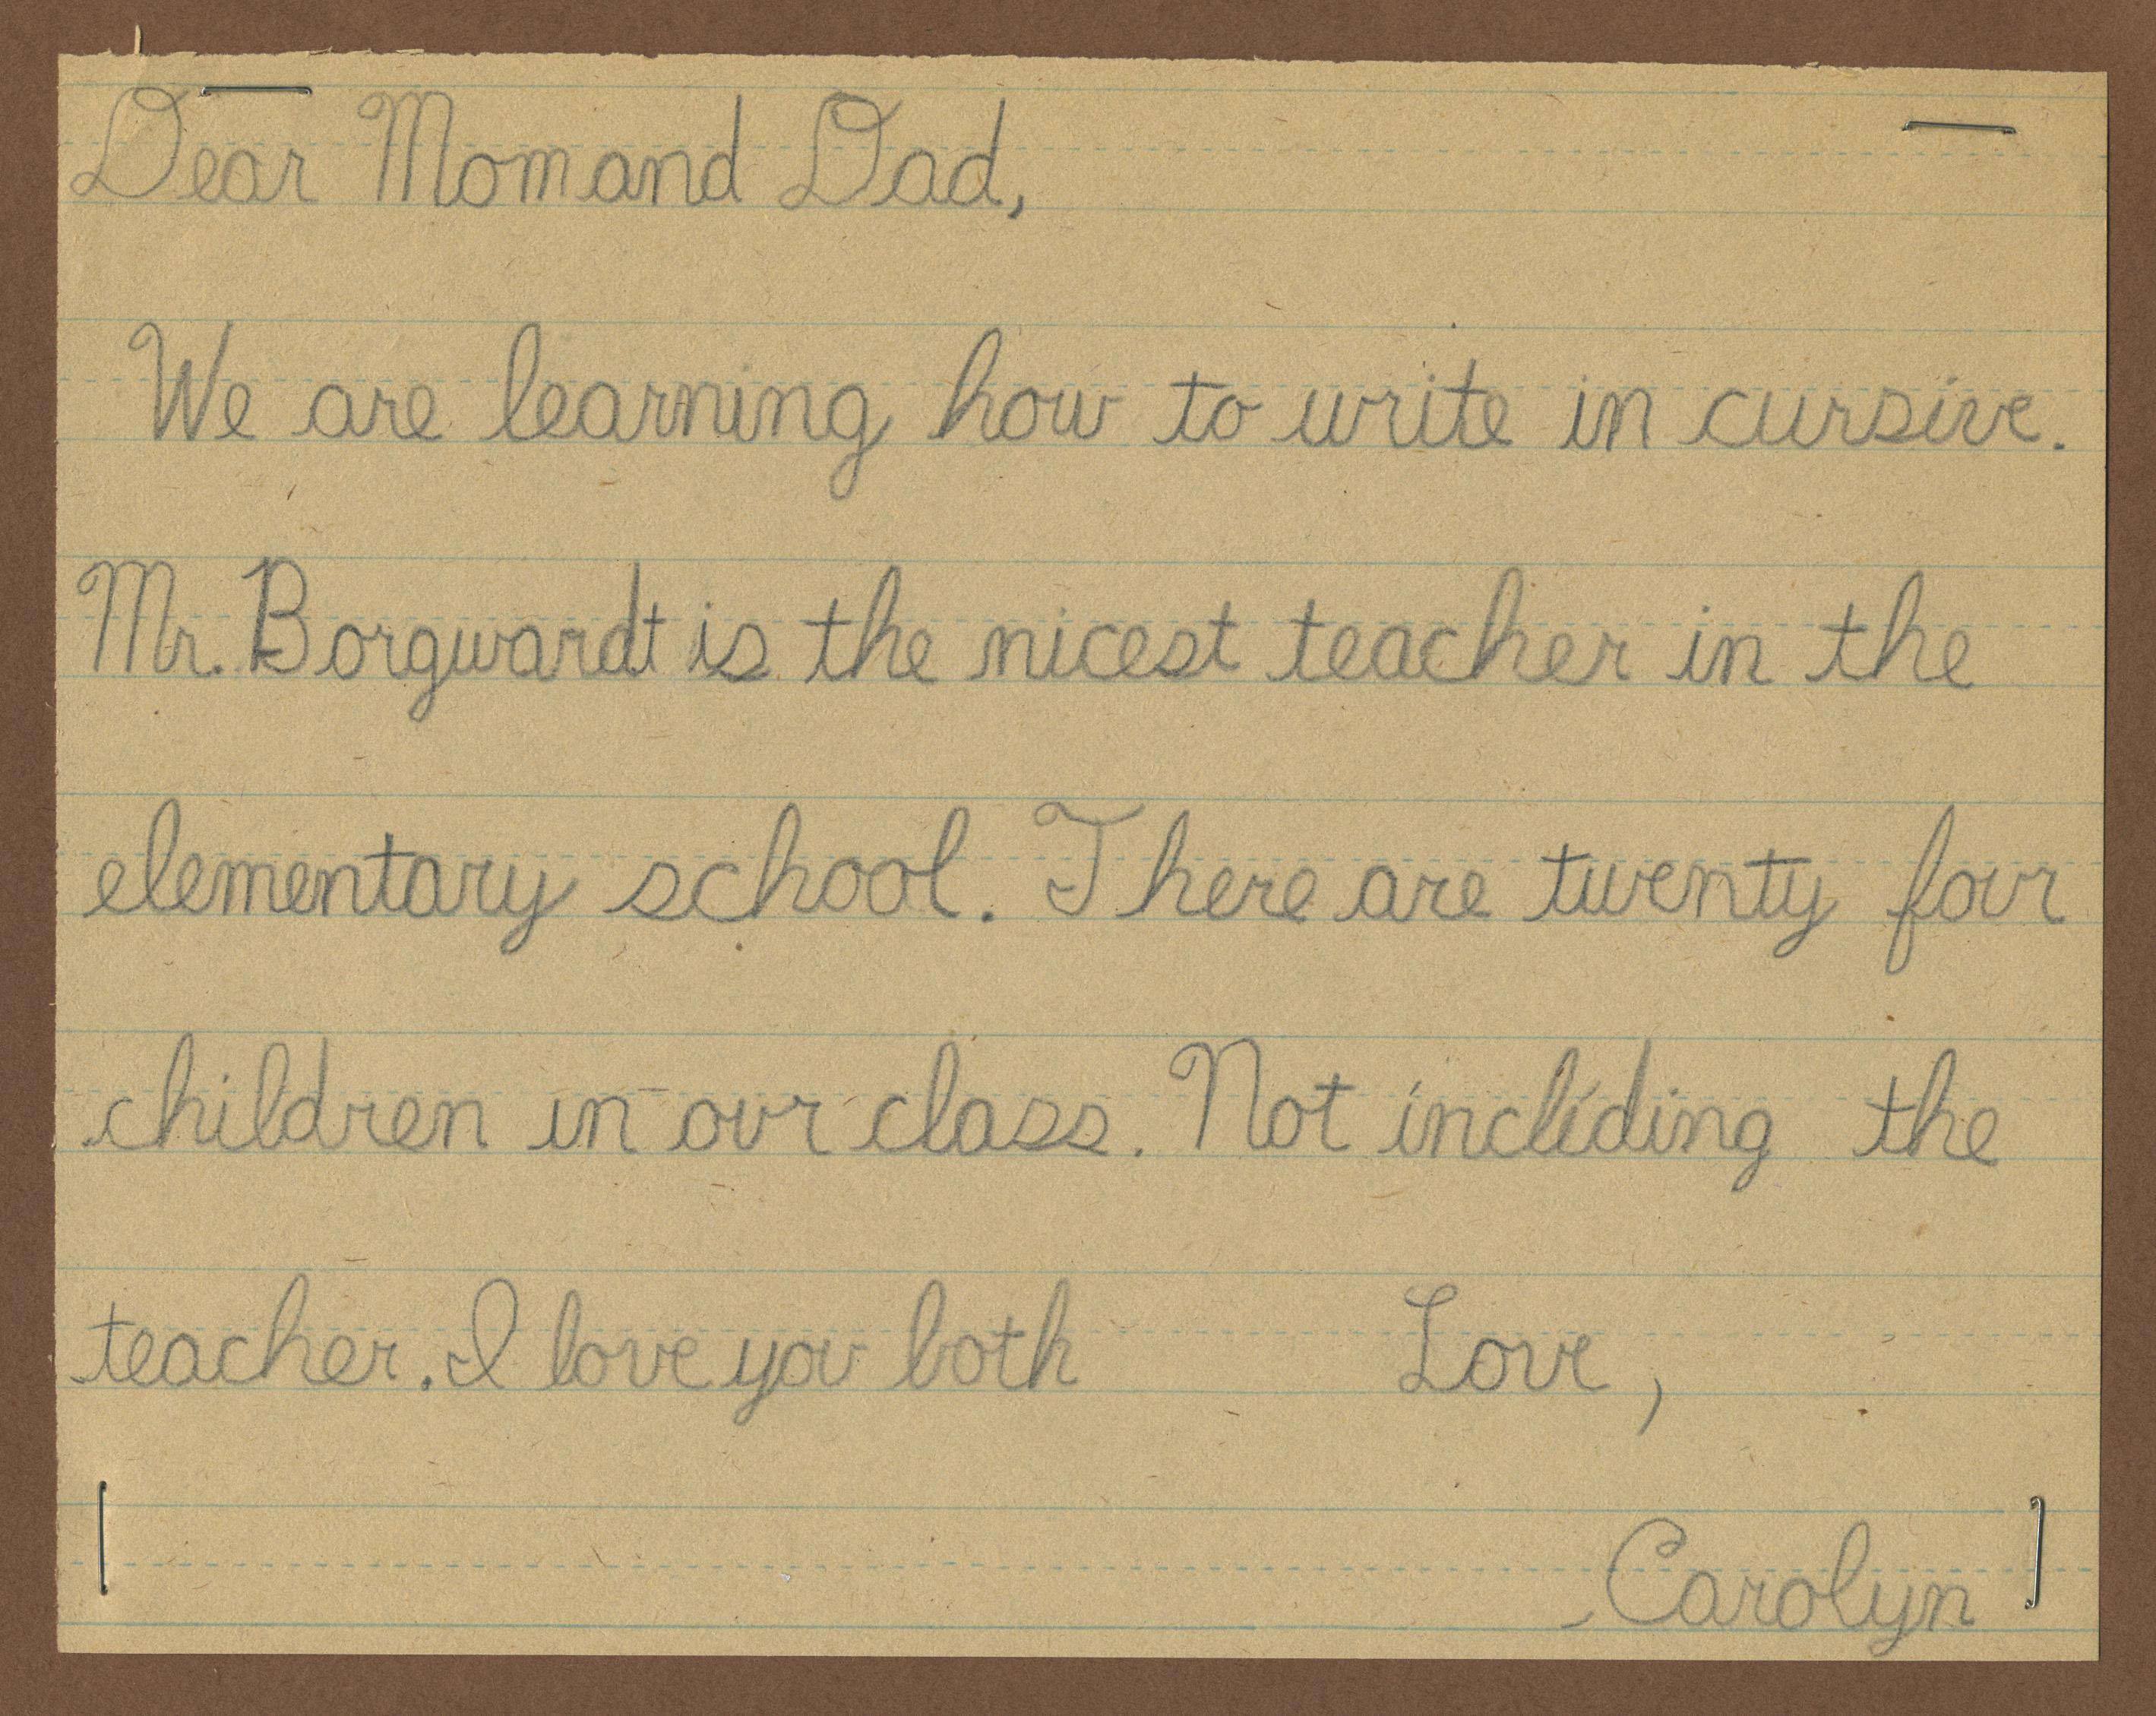 Dear Mom and Dad,
We are learning how to write in cursive.
Mr. Borgwardt is the nicest teacher in the
elementary school. There are twenty four
children in our class. Not including the
teacher. I love you both Love,
Carolyn